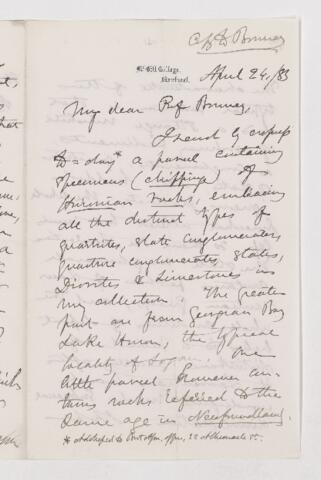 McGill College,
Montreal.
April 24/83
My dear Prof Bonney,
I send by express
to-day* a parcel containing
specimens (chippings) of
Huronian rocks, embracing
all the distinct types of
quartzites, slate conglomerates,
quartzite conglomerates, slates,
Diorites & Limestones in
my collection. The greater
part are from Georgian Bay
Lake Huron, the typical
locality of Logan. One
little parcel however con-
tains rocks referred to the
same age in Newfoundland.
* Addressed to Brit Assn. office, 22 Albemarle St.